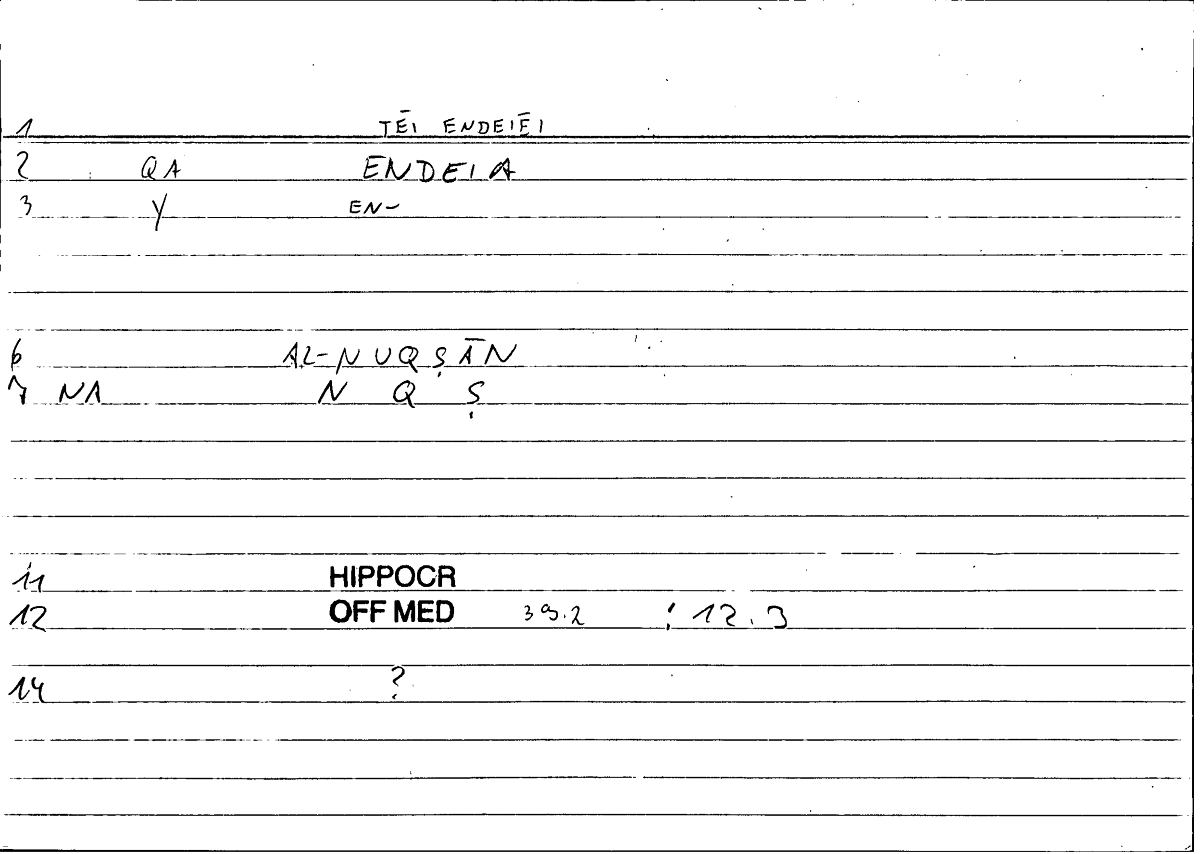 1 TĒI ENDEIĒI
2 QA ENDEIA
3 Y EN-
6 AL-NUQṢĀN
7 NA N Q Ṣ
11 HIPPOCR
12 OFF MED 39.2 : 12.3
14 ?